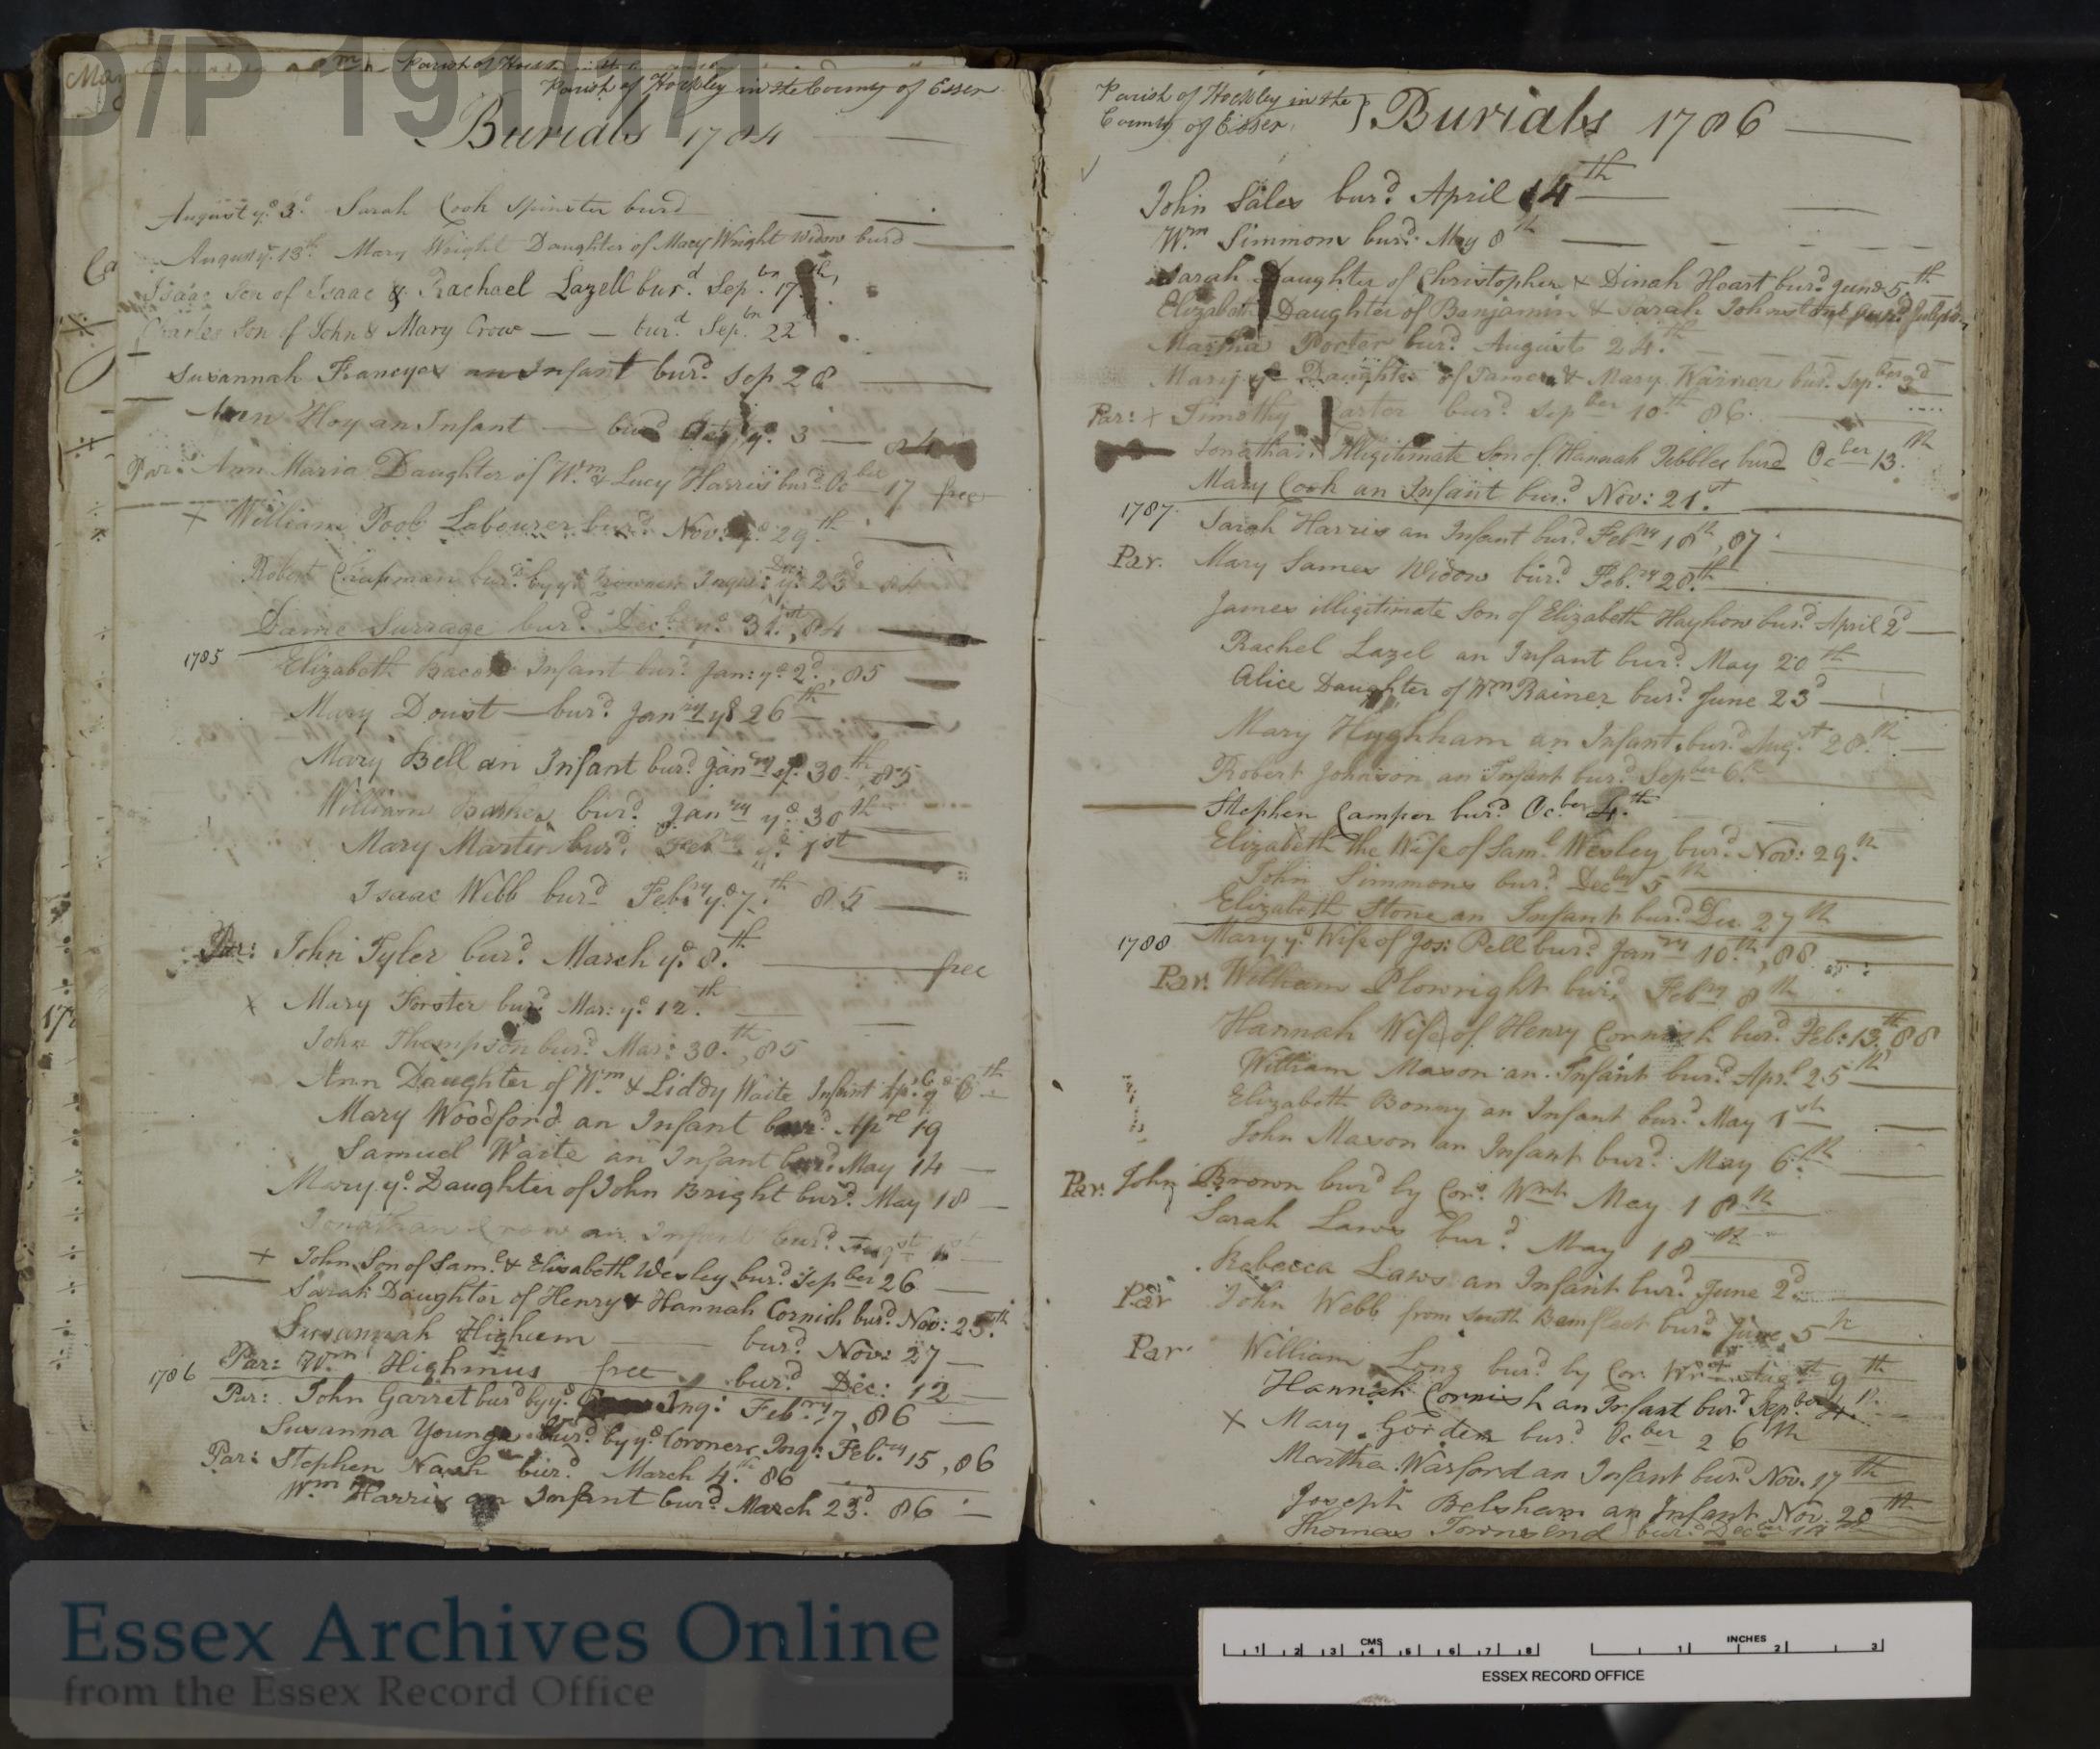 D/P 191/1/1
Parish of Hockley in the County of Essex
Burials 1784
August ye 3d Sarah Cook Spinster burd
August ye 13th Mary Wright Daughter of Mary Wright Widow burd
Isaac Son of Isaac & Rachael Lazell burd Sepbr 17th
Charles Son of John & Mary Crow burd Sepbr 22
Susannah Francyes an Infant burd Sep 28
Ann Hoy an Infant burd ye 3 84
Par: Ann Maria Daughter of Wm & Lucy Harris burd Ocber 17 free
+ William Pool Labourer burd Nov: ye 29th
Robert Chapman burd by ye Inqu: Dec: ye 23d 84
Dame Surrage burd Decbr ye 31st, 84
1785 Elizabeth Infant burd Jan: ye 2d, 85
Mary Doust burd Janry ye 26th
Mary Bell an Infant burd Janry ye 30th, 85
William burd Janry ye 30th
Mary Martin burd Febry ye 1st
Isaac Webb burd Febry ye 7th 85
Par: John Tyler burd March ye 8th free
+ Mary Forster burd Mar: ye 12th
John Thompson burd Mar: 30th, 85
Ann Daughter of Wm & Liddy Waite Infant Ap: ye 6th
Mary Woodford an Infant burd Aprl 19
Samuel Waite an Infant burd May 14
Mary ye Daughter of John Bright burd May 18
Jonathan Crow an Infant burd Augst
+ John Son of Saml & Elisabeth Wesley burd Sepber 26
Sarah Daughter of Henry & Hannah Cornish burd Nov: 25th
Susannah Highum burd Nov: 27
Par: Wm Highmus free burd Dec: 12
1786 Par: John Garret burd by ye Inq: Febry 7, 86
Susanna Younge burd by ye Coroners Inq: Febry 15, 86
Par: Stephen Nash burd March 4th 86
Wm Harris an Infant burd March 23d 86
Parish of Hockley in the
County of Essex } Burials 1786
John Sales burd April 14th
Wm Simmons burd May 8th
Sarah Daughter of Christopher & Dinah Hoart burd June 5th
Elizabeth Daughter of Benjamin & Sarah
Martha Porter burd August 24th
Mary ye Daughter of James & Mary Warner burd Sepber 3d
Par: + Timothy Carter burd Sepber 10th 86
Jonathan Illigitimate Son of Hannah Tibbles burd Ocber 13th
Mary Cook an Infant burd Nov: 21st
1787 Sarah Harris an Infant burd Febry 18th, 87
Par. Mary James Widow burd Febry 28th
James illigitimate Son of Elizabeth Hayhow burd April 2d
Rachel Lazel an Infant burd May 20th
Alice Daughter of Wm Rainer burd June 23d
Mary Hughham an Infant burd Augst 28th
Robert Johnson an Infant burd Sepber 6th
Stephen Camper burd Ocber 4th
Elizabeth the Wife of Saml Wesley burd Nov: 29th
John Simmons burd Decbr 5th
Elizabeth Stone an Infant burd Dec 27th
1788 Mary ye Wife of Jos: Pell burd Janry 10th, 88
Par. William Plowright burd Febry 8th
Hannah Wife of Henry Cornish burd Feb: 13th 88
William Maxon an Infant burd Aprl 25th
Elizabeth Bonny an Infant burd May 1st
John Maxon an Infant burd May 6th
Par. John Brown burd by Cors Wrnt May 18th
Sarah Laws burd May 18th
Rebecca Laws an Infant burd June 2d
Par John Webb from South Bemfleet burd June 5th
Par William Long burd by Cor: 9th
Hannah Cornish an Infant burd Sepber 4th
+ Mary Gorden burd Ocber 26th
Martha Warford an Infant burd Nov. 17th
Joseph Belsham an Infant Nov. 28th
Thomas Townsend burd Decber
Essex Archives Online
from the Essex Record Office
CMS
1 2 3 4 5 6 7 8
INCHES
1 2 3
ESSEX RECORD OFFICE